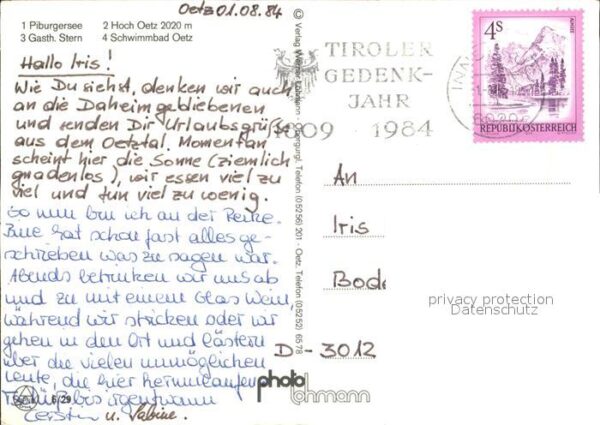 Oetz 01.08.84
1 Piburgersee 2 Hoch Oetz 2020 m
3 Gasth. Stern 4 Schwimmbad Oetz
Hallo Iris!
Wie Du siehst, denken wir auch
an die Daheimgebliebenen
und senden Dir Urlaubsgrüße
aus dem Oetztal. Momentan
scheint hier die Sonne (ziemlich
gnadenlos), wir essen viel zu
viel und tun viel zu wenig.
So nun bin ich an der Reihe.
Bine hat schon fast alles ge-
schrieben was zu sagen war.
Abends betrinken wir uns ab
und zu mit einem Glas Wein,
während wir stricken oder wir
gehen in den Ort und lästern
über die vielen unmöglichen
Leute, die hier herumlaufen
Tschüß bis irgendwann
Kerstin u. Sabine.
6/29
© Verlag Lohmann Obergurgl, Telefon (05256) 201 - Oetz, Telefon (05252) 6578
TIROLER
GEDENK-
JAHR
1809 1984
INNS
6020
4S
REPUBLIK ÖSTERREICH
An
Iris
Bode
D-3012
privacy protection
Datenschutz
photo
lohmann